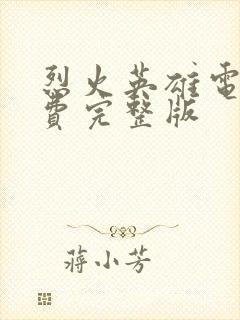 烈火英雄電
費完整版
蔣小芳